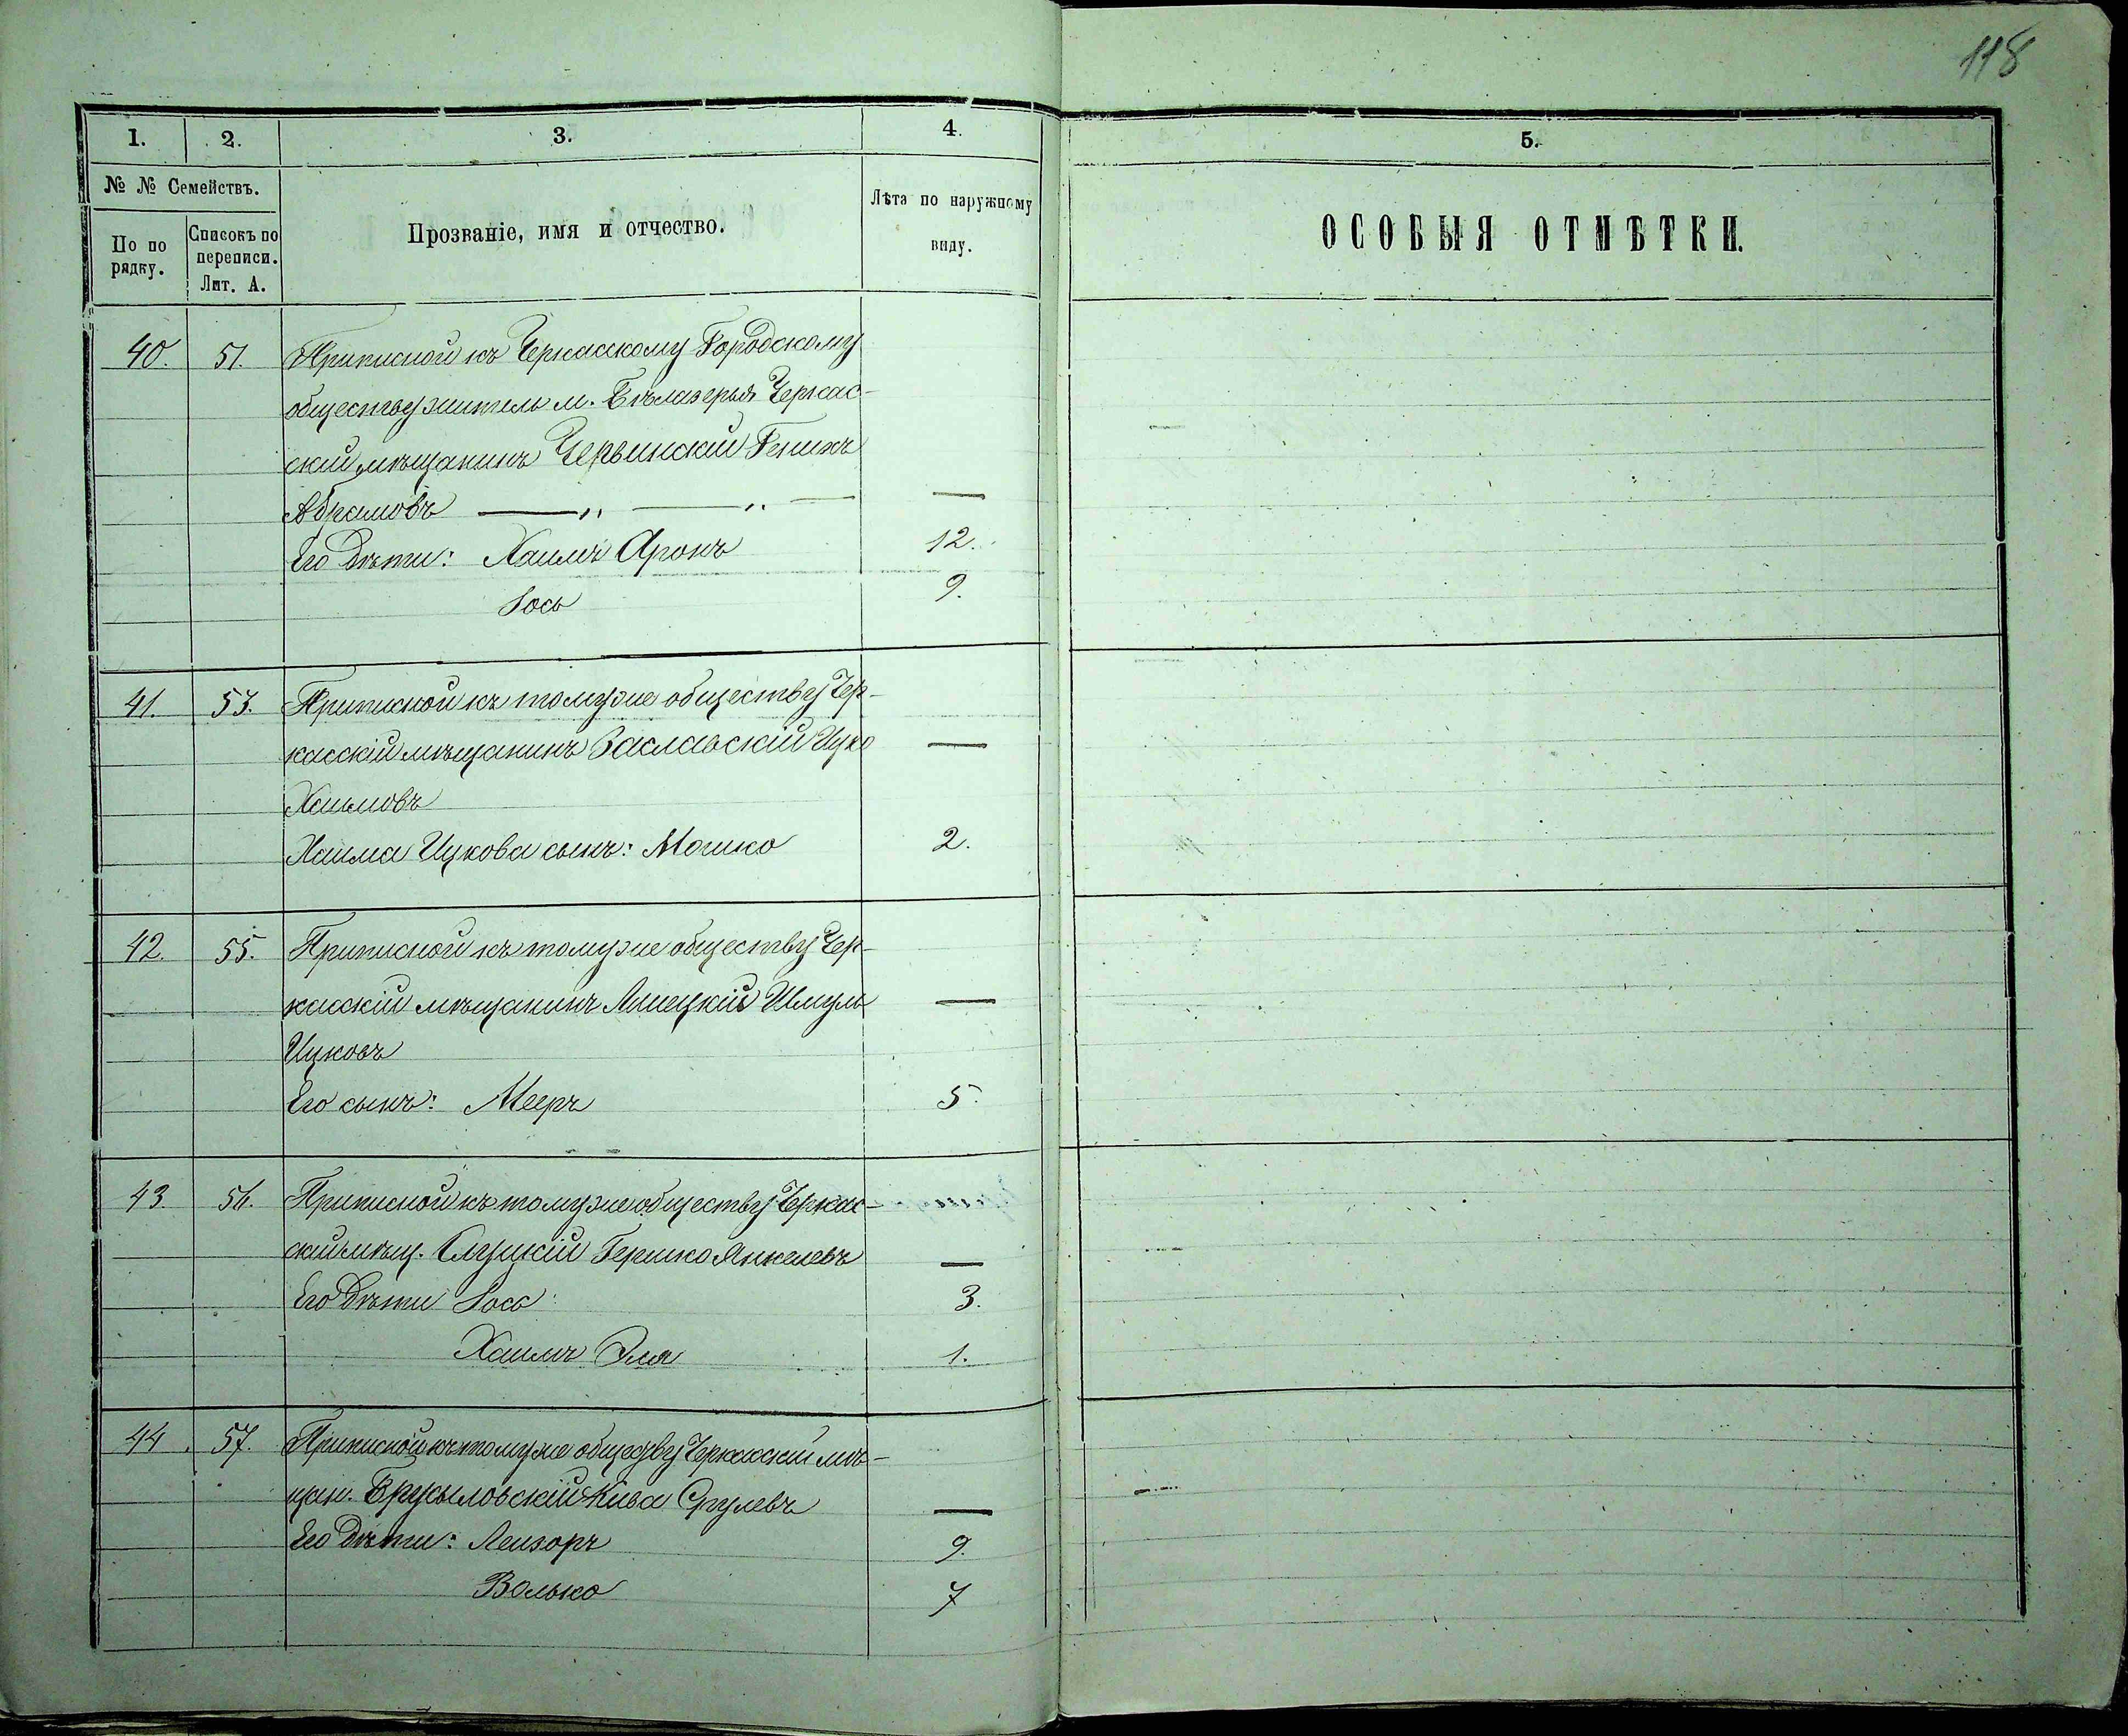 118
1. 2. 3. 4. 5.
№ № Семействъ.
По по рядку.
Списокъ по переписи. Лит. А.
Прозваніе, имя и отчество.
Лѣта по наружному виду.
ОСОБЫЯ ОТМѢТКИ.
40. 51. Приписной къ Черкасскому Городскому
обществу житель м. Бѣлазерья Черкас-
скій мѣщанинъ Червинскій Генихъ
Абрамовъ — „ — „ — —
Его дѣти: Хаимъ Аронъ 12.
Іось 9.
41. 53. Приписной къ томуже обществу Чер-
касскій мѣщанинъ Заславскій Ицко —
Хаимовъ
Хаима Ицкова сынъ: Мошко 2.
42. 55. Приписной къ томуже обществу Чер-
касскій мѣщанинъ Шмуль —
Ицковъ
Его сынъ: Мееръ 5.
43 56. Приписной къ томуже обществу Черкас-
скій мѣщ. Слуцкій Гершко Янкелевъ —
Его дѣти Іось 3.
Хаимъ Эля 1.
44. 57. Приписной къ томуже обществу Черкасскій мѣ-
щан. Брусиловскій Кива Срулевъ —
Его дѣти: Лейзоръ 9.
Волько 7